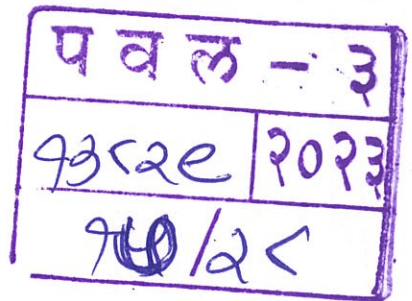 प व ल - ३
१३८२९ २०२३
१५/२८